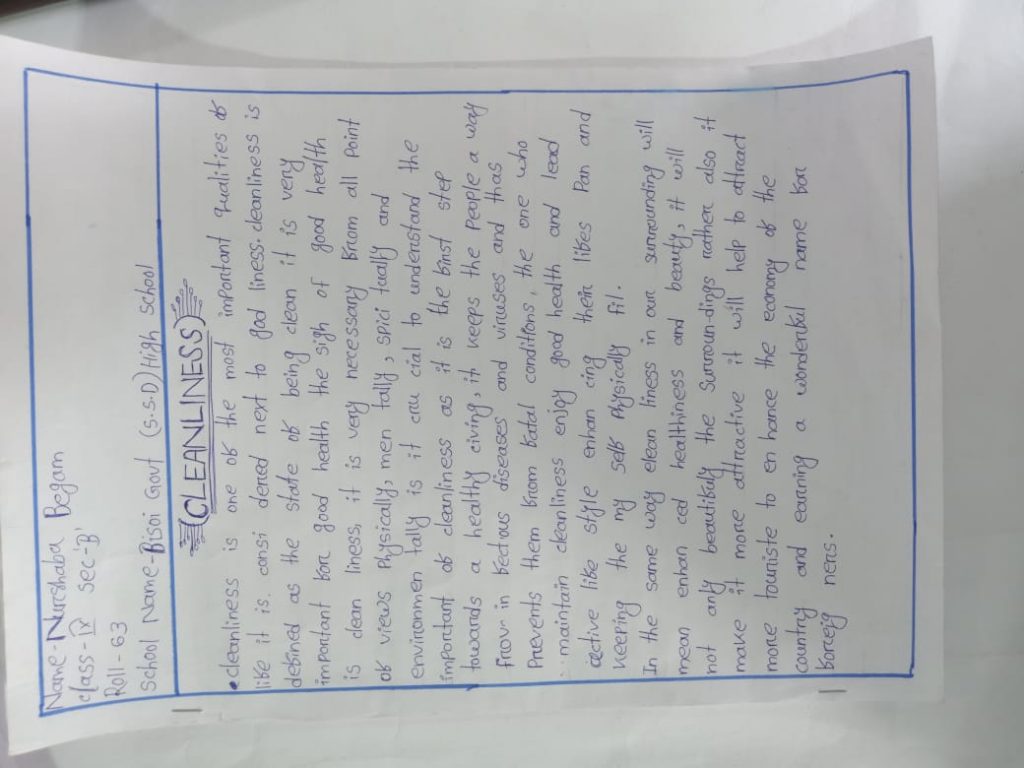 Name-Nurshaba Begam
class-IV sec-'B'
Roll-63
School Name-Bisoi Govt (S.S.D) High School
CLEANLINESS
• cleanliness is one of the most important qualities of
life it is. consi dered next to god liness. cleanliness is
defined as the state of being clean it is very
important for good health the sigh of good health
is clean liness, it is very necessary from all point
of views Physically, men tally, spici tually and
environmen tally is it cru cial to understand the
important of cleanliness as it is the first step
towards a healthy living, it keeps the People a way
from in fectious diseases and viruses and thas
Prevents them from fatal conditions, the one who
maintain cleanliness enjoy good health and lead
active like style enhan cing their likes Pan and
keeping the my self Physically fit.
In the same way clean liness in our surrounding will
mean enhan ced healthiness and beauty, it will
not only beautifuly the Surroun-dings reather also it
make it more attractive it will help to attract
more touriste to en hance the economy of the
country and earning a wonderful name for
foreig ners.